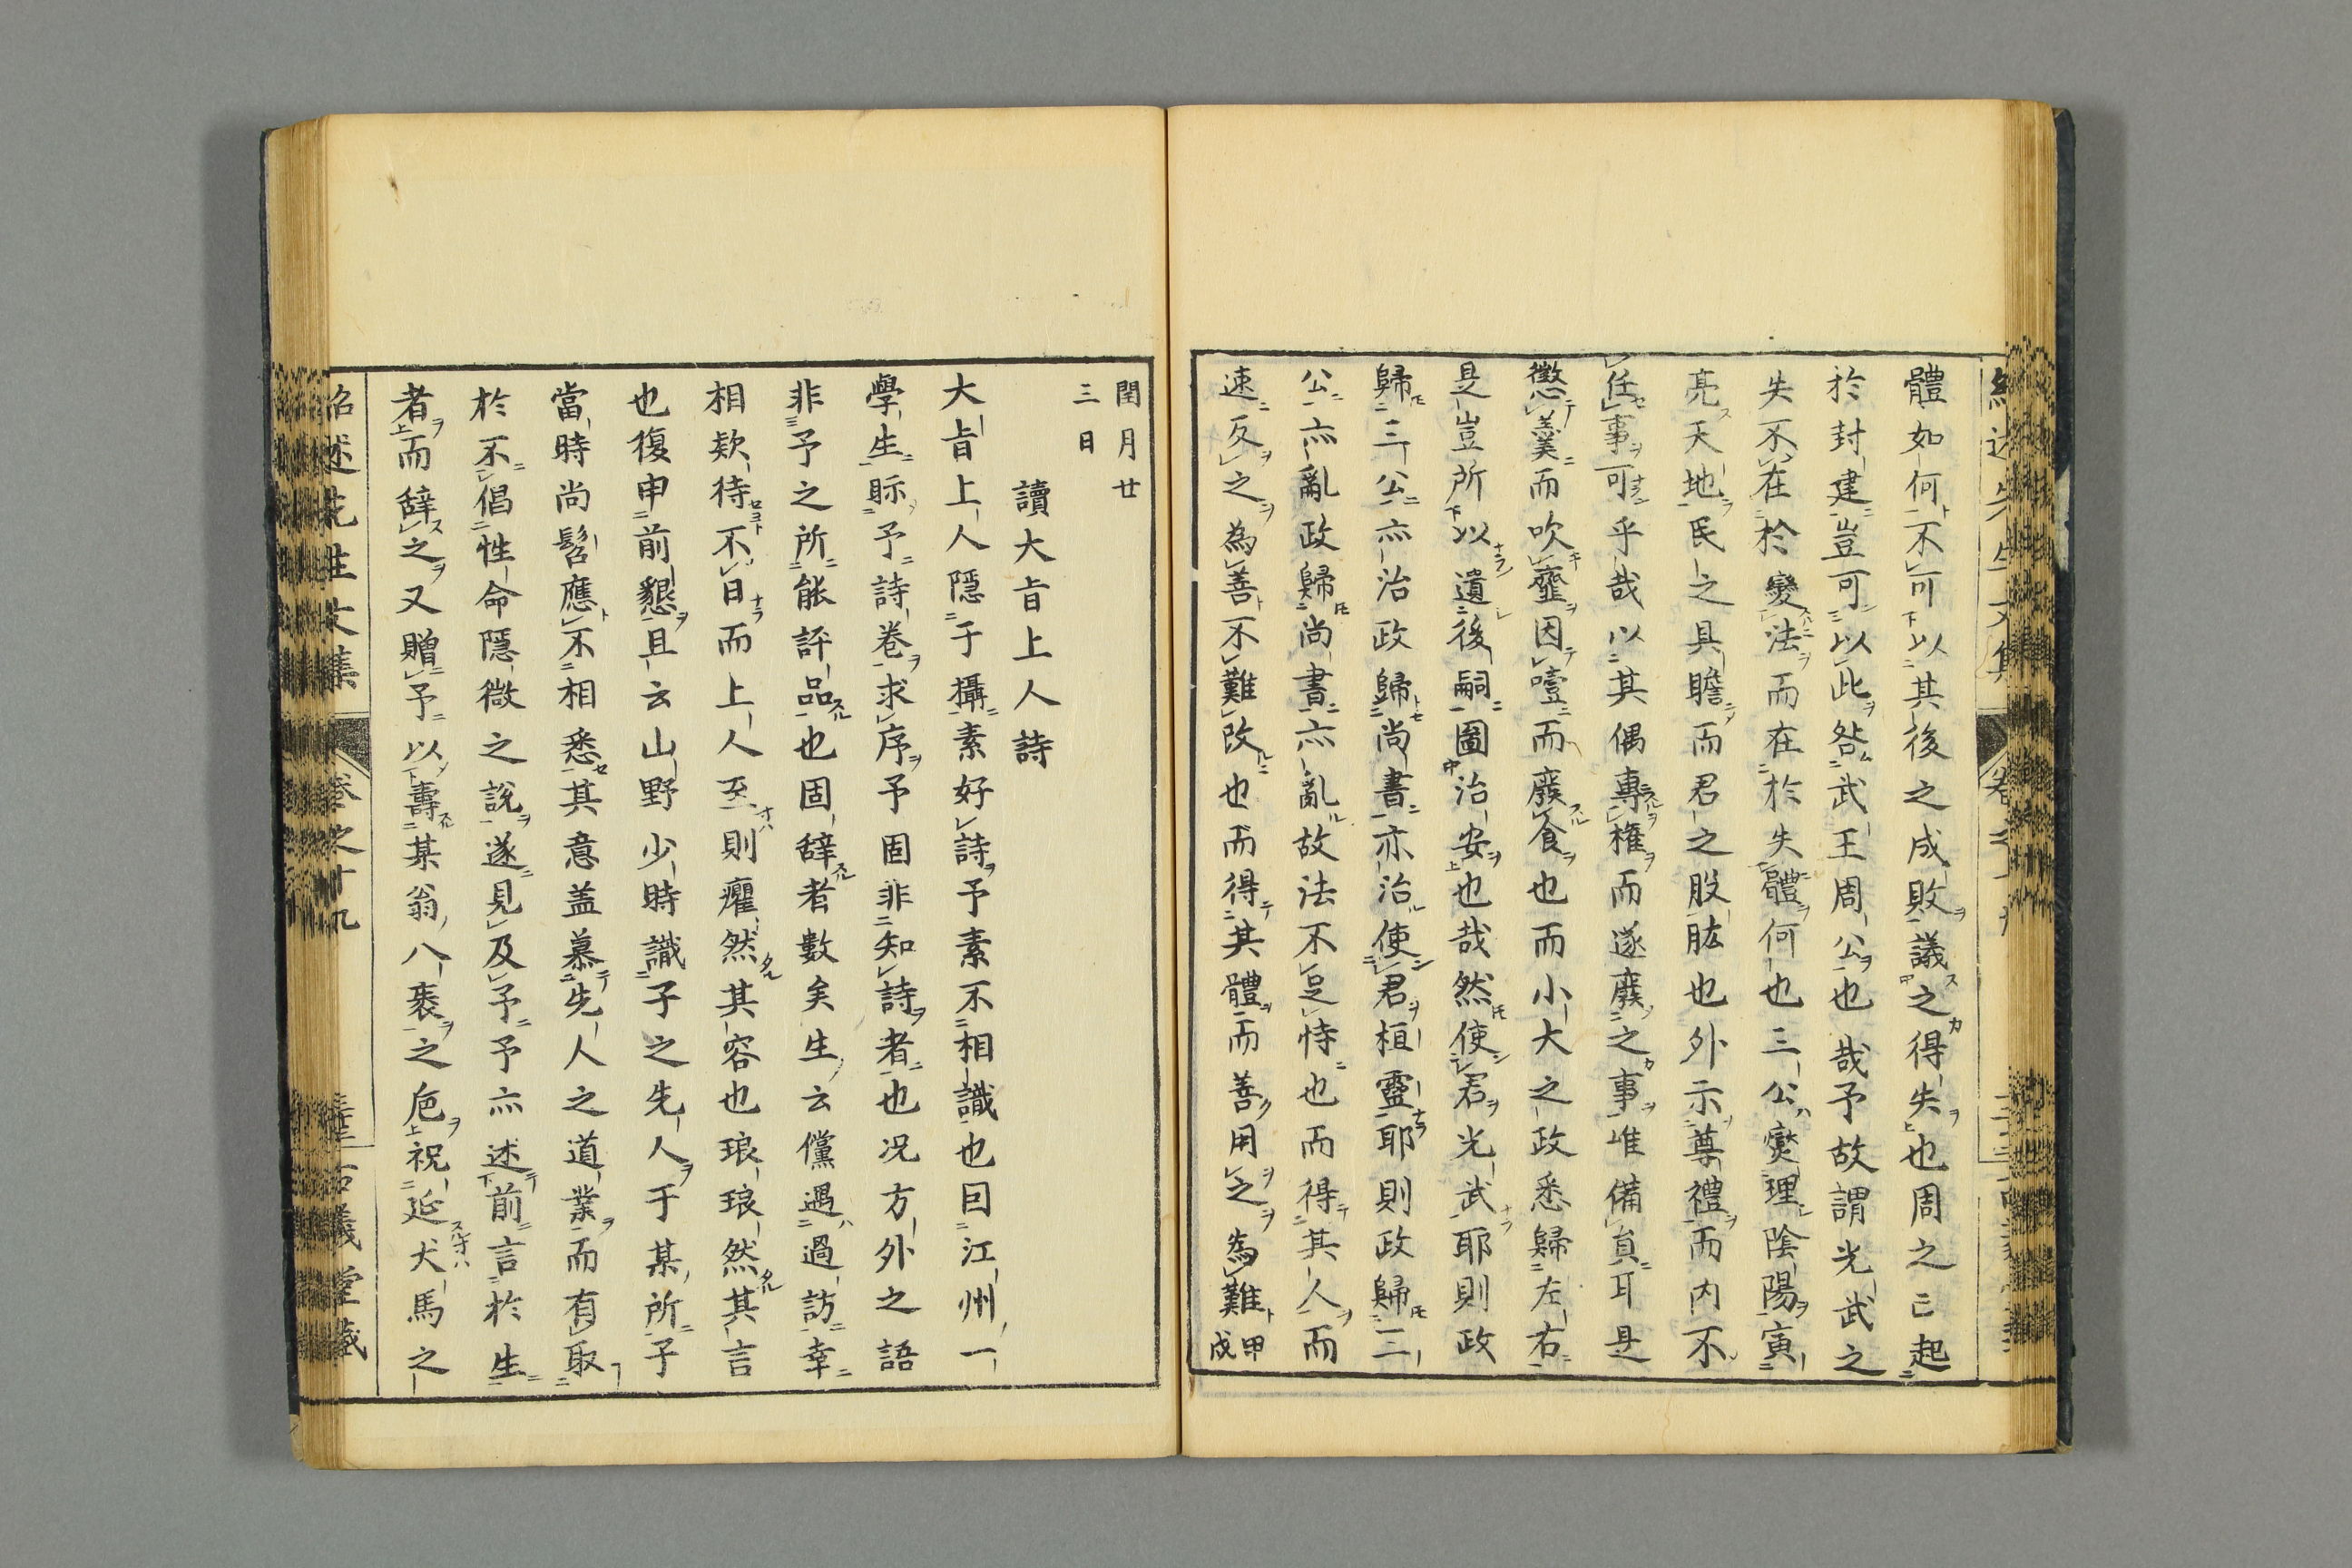 體如何不可以其後之成敗議之得失也周之已起
於封建豈可以此咎武王周公也哉予故謂光武之
失不在於變法而在於失體何也三公燮理陰陽寅
亮天地民之具瞻而君之股肱也外示尊禮而内不
任事可乎哉以其偶專權而遂廢之事唯備員耳是
懲羹而吹虀因噎而廢食也而小大之政悉歸左右
是豈所以遺後嗣圖治安也哉然使君光武耶則政
歸三公亦治政歸尚書亦治使君桓靈耶則政歸三
公亦亂政歸尚書亦亂故法不足恃也而得其人而
速反之為善不難改也而得其體而善用之為難甲戌
閏月廿
三日
讀大旨上人詩
大旨上人隱于攝素好詩予素不相識也囙江州一
學生眎予詩卷求序予固非知詩者也况方外之語
非予之所能評品也固辭者數矣生云儻過過訪幸
相欵待不日而上人至則癯然其容也琅琅然其言
也復申前懇且云山野少時識子之先人于某所子
當時尚髫應不相悉其意盖慕先人之道業而有取
於不倡性命隱微之説遂見及予予亦述前言於生
者而辭之又贈予以壽某翁八袠之巵祝延犬馬之
紹述先生文集 卷之十九 古義堂藏